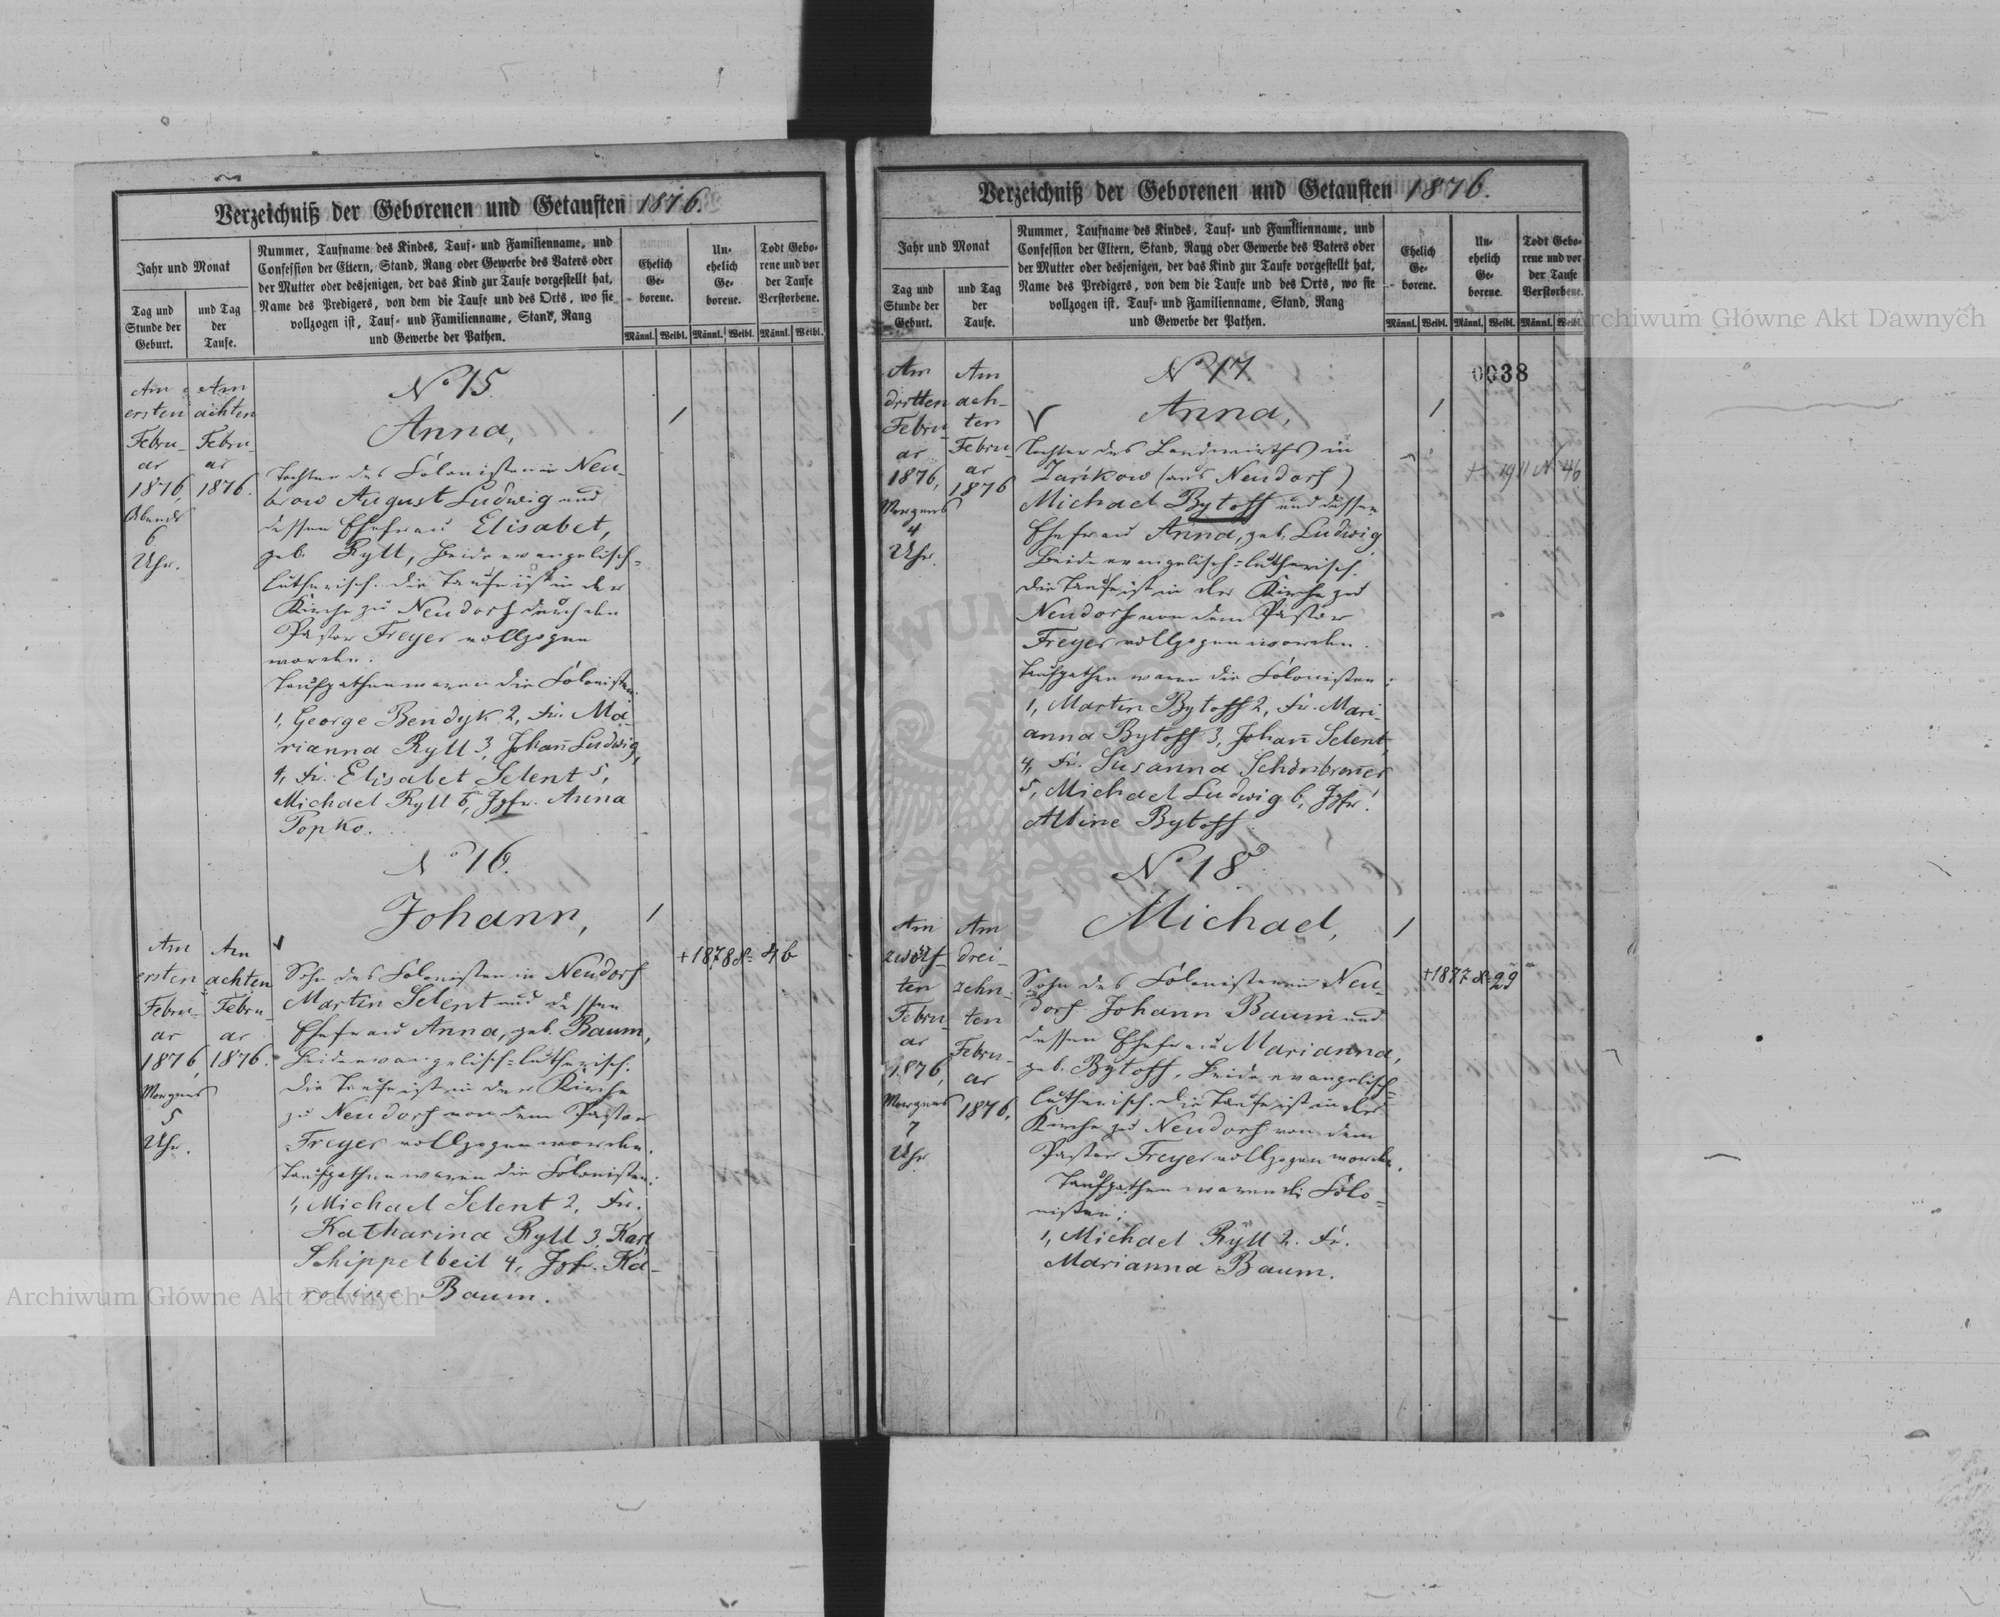 Verzeichniß der Geborenen und Getauften 1876.
Jahr und Monat
Tag und
Stunde der
Geburt.
und Tag
der
Taufe.
Nummer, Taufname des Kindes, Tauf- und Familienname, und
Confession der Eltern, Stand, Rang oder Gewerbe des Vaters oder
der Mutter oder desjenigen, der das Kind zur Taufe vorgestellt hat,
Name des Predigers, von dem die Taufe und des Orts, wo sie
vollzogen ist, Tauf- und Familienname, Stand, Rang
und Gewerbe der Pathen.
Ehelich
Ge-
borene.
Un-
ehelich
Ge-
borene.
Todt Gebo-
rene und vor
der Taufe
Verstorbene.
Männl. Weibl. Männl. Weibl. Männl. Weibl.
Am
ersten
Febru-
ar
1876,
Abends
6
Uhr.
Am
achten
Febru-
ar
1876.
No 15.
Anna,
1
Tochter des Colonisten in Neu-
bow August Ludwig und
dessen Ehefrau Elisabet,
geb. Ryll, beide evangelisch-
lutherisch. Die Taufe ist in der
Kirche zu Neudorf durch den
Pastor Freyer vollzogen
worden.
Taufpathen waren die Colonisten:
1, George Bendyk 2, Fr. Ma-
rianna Ryll 3, Johañ Ludwig,
4, Fr. Elisabet Selent 5,
Michael Ryll 6, Jgfr. Anna
Popko.
No 16.
Johann,
1
Am
ersten
Febru-
ar
1876,
Morgens
5
Uhr.
Am
achten
Febru-
ar
1876.
+ 1878 N 46
Sohn des Colonisten in Neudorf
Martin Selent und dessen
Ehefrau Anna, geb. Baum,
beide evangelisch-lutherisch.
Die Taufe ist in der Kirche
zu Neudorf von dem Pastor
Freyer vollzogen worden.
Taufpathen waren die Colonisten:
1, Michael Selent 2, Fr.
Katharina Ryll 3. Karl
Schippelbeil 4, Jgfr. Ka-
roline Baum.
Verzeichniß der Geborenen und Getauften 1876.
Jahr und Monat
Tag und
Stunde der
Geburt.
und Tag
der
Taufe.
Nummer, Taufname des Kindes, Tauf- und Familienname, und
Confession der Eltern, Stand, Rang oder Gewerbe des Vaters oder
der Mutter oder desjenigen, der das Kind zur Taufe vorgestellt hat,
Name des Predigers, von dem die Taufe und des Orts, wo sie
vollzogen ist, Tauf- und Familienname, Stand, Rang
und Gewerbe der Pathen.
Ehelich
Ge-
borene.
Un-
ehelich
Ge-
borene.
Todt Gebo-
rene und vor
der Taufe
Verstorbene.
Männl. Weibl. Männl. Weibl. Männl. Weibl.
0038
Am
dritten
Febru-
ar
1876,
Morgens
4
Uhr.
Am
ach-
ten
Febru
ar
1876
No 17.
Anna,
1
+ 1911 N 46
Tochter des Landwirths in
Zarikow (aus Neudorf)
Michael Bytoff und dessen
Ehefrau Anna, geb. Ludwig
beide evangelisch-lutherisch.
Die Taufe ist in der Kirche zu
Neudorf von dem Pastor
Freyer vollzogen worden.
Taufpathen waren die Colonisten:
1, Martin Bytoff 2, Fr. Mari-
anna Bytoff 3, Johañ Selent
4, Fr. Susanna Schönbroñer
5, Michael Ludwig 6, Jgfr.
Albine Bytoff.
No 18
Michael,
1
Am
zwölf-
ten
Febru-
ar
1876,
Morgens
7
Uhr
Am
drei-
zehn-
ten
Febru-
ar
1876.
+ 1877 N 29
Sohn des Colonisten in Neu-
dorf Johann Baum und
dessen Ehefrau Marianna,
geb. Bytoff, beide evangelisch-
lutherisch. Die Taufe ist in der
Kirche zu Neudorf von dem
Pastor Freyer vollzogen worden.
Taufpathen waren die Colo-
nisten:
1, Michael Ryll 2. Fr.
Marianna Baum.
Archiwum Główne Akt Dawnych
Archiwum Główne Akt Dawnych